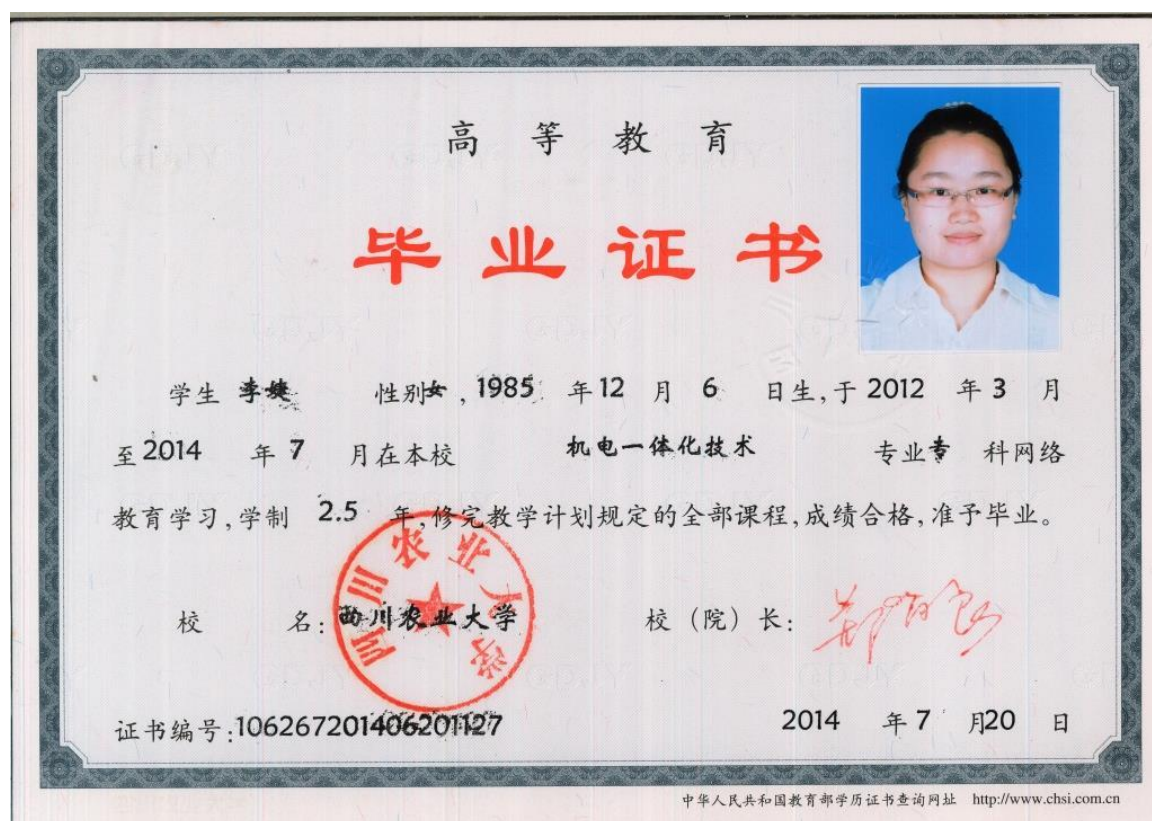 高等教育
毕业证书
学生 李婕 性别女,1985 年12 月 6 日生,于 2012 年 3 月
至2014 年 7 月在本校 机电一体化技术 专业专 科网络
教育学习,学制 2.5 年,修完教学计划规定的全部课程,成绩合格,准予毕业。
校 名:四川农业大学 校(院)长:
四川农业大学
证书编号:106267201406201127 2014 年 7 月20 日
中华人民共和国教育部学历证书查询网址 http://www.chsi.com.cn